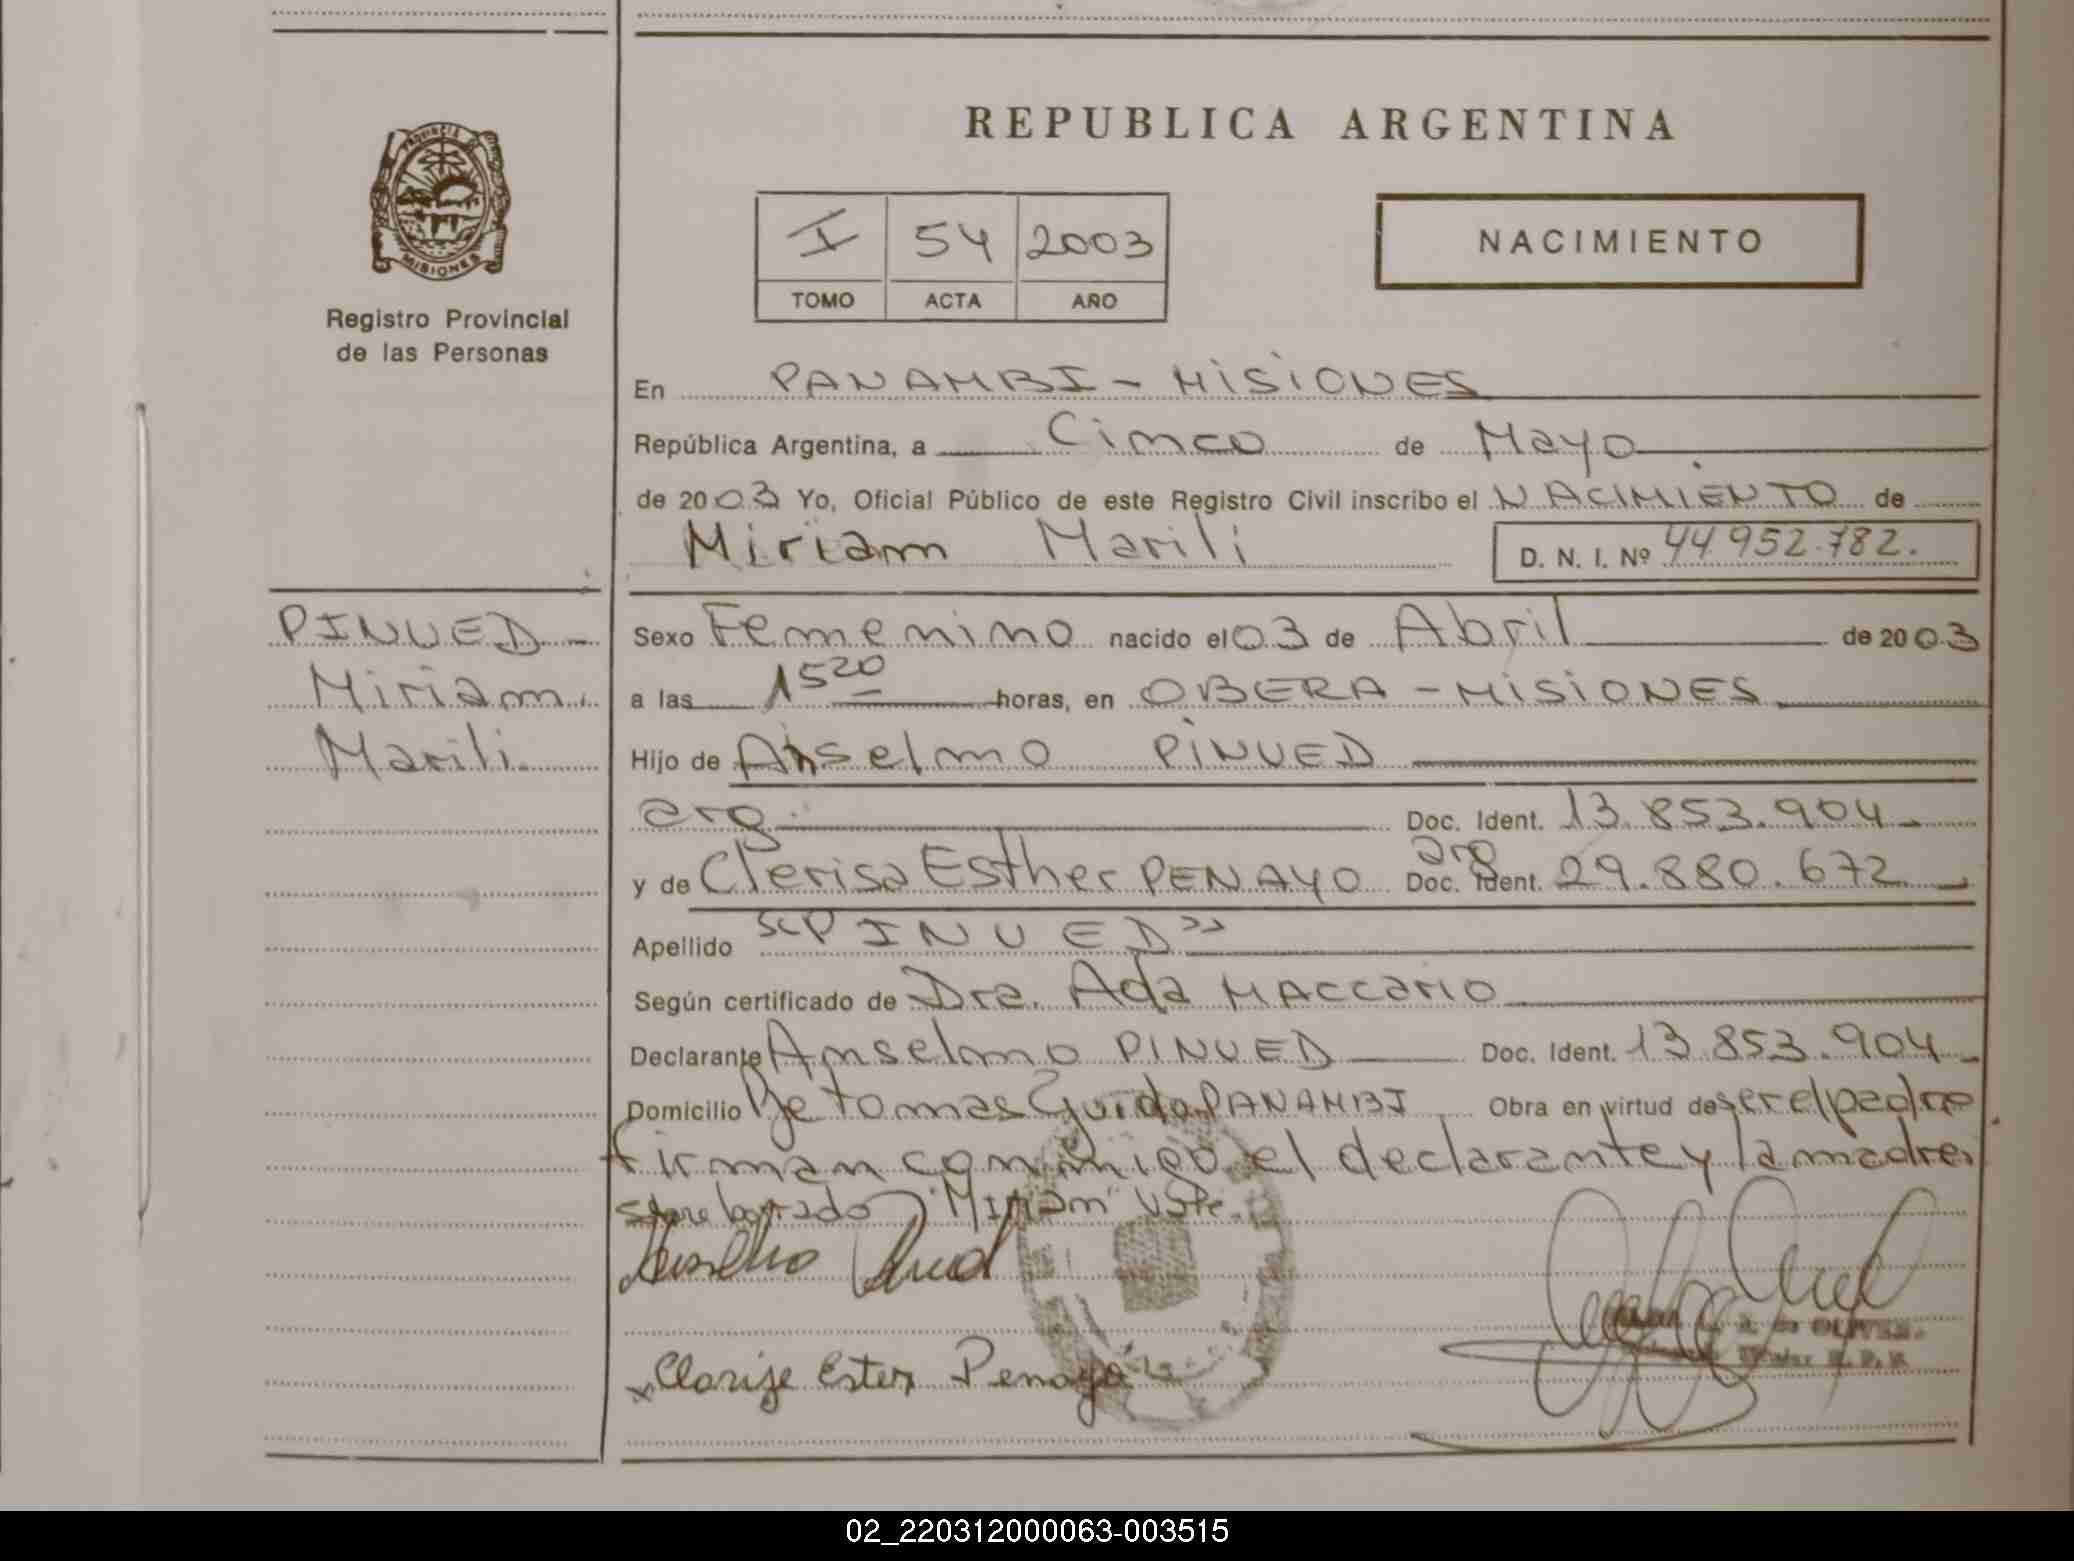 REPUBLICA ARGENTINA
PROVINCIA
MISIONES
Registro Provincial
de las Personas
I 54 2003
TOMO ACTA AÑO
NACIMIENTO
En PANAMBI - MISIONES
República Argentina, a Cinco de Mayo
de 2003 Yo, Oficial Público de este Registro Civil inscribo el NACIMIENTO de
Miriam Marili D. N. I. Nº 44.952.782.
PINUED -
Miriam
Marili
Sexo Femenino nacido el 03 de Abril de 2003
a las 15 20 horas, en OBERA - MISIONES
Hijo de Anselmo PINUED
arg. Doc. Ident. 13.853.904.-
y de Clerisa Esther PENAYO arg Doc. Ident. 29.880.672.-
Apellido "PINUED"
Según certificado de Dra. Ada MACCARIO
Declarante Anselmo PINUED Doc. Ident. 13.853.904.-
Domicilio tomas Guido PANAMBI Obra en virtud de ser el padre
firman conmigo el declarante y la madre.
sobre borrado "Miriam" Vale.
Anselmo
Clarise Ester Penayo
de OLIVER
02_220312000063-003515